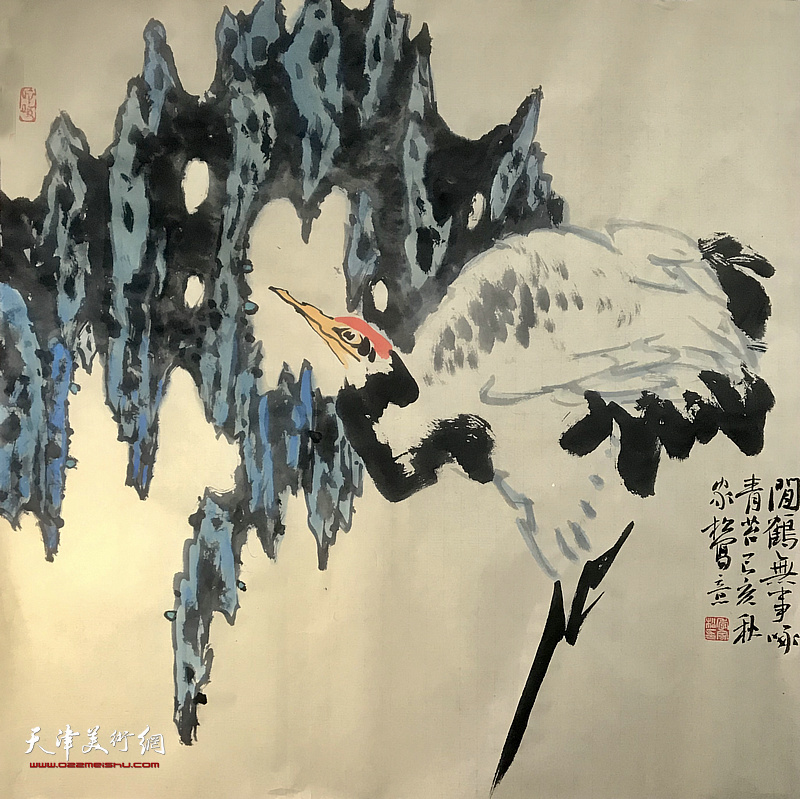 閒鶴無事啄
青苔己亥秋
家松寫意
天津美術網
www.022meishu.com